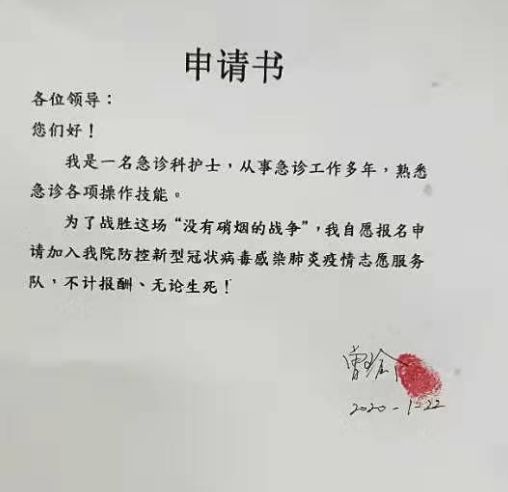 申请书
各位领导：
您们好！
我是一名急诊科护士，从事急诊工作多年，熟悉
急诊各项操作技能。
为了战胜这场“没有硝烟的战争”，我自愿报名申
请加入我院防控新型冠状病毒感染肺炎疫情志愿服务
队，不计报酬、无论生死！
2020-1-22